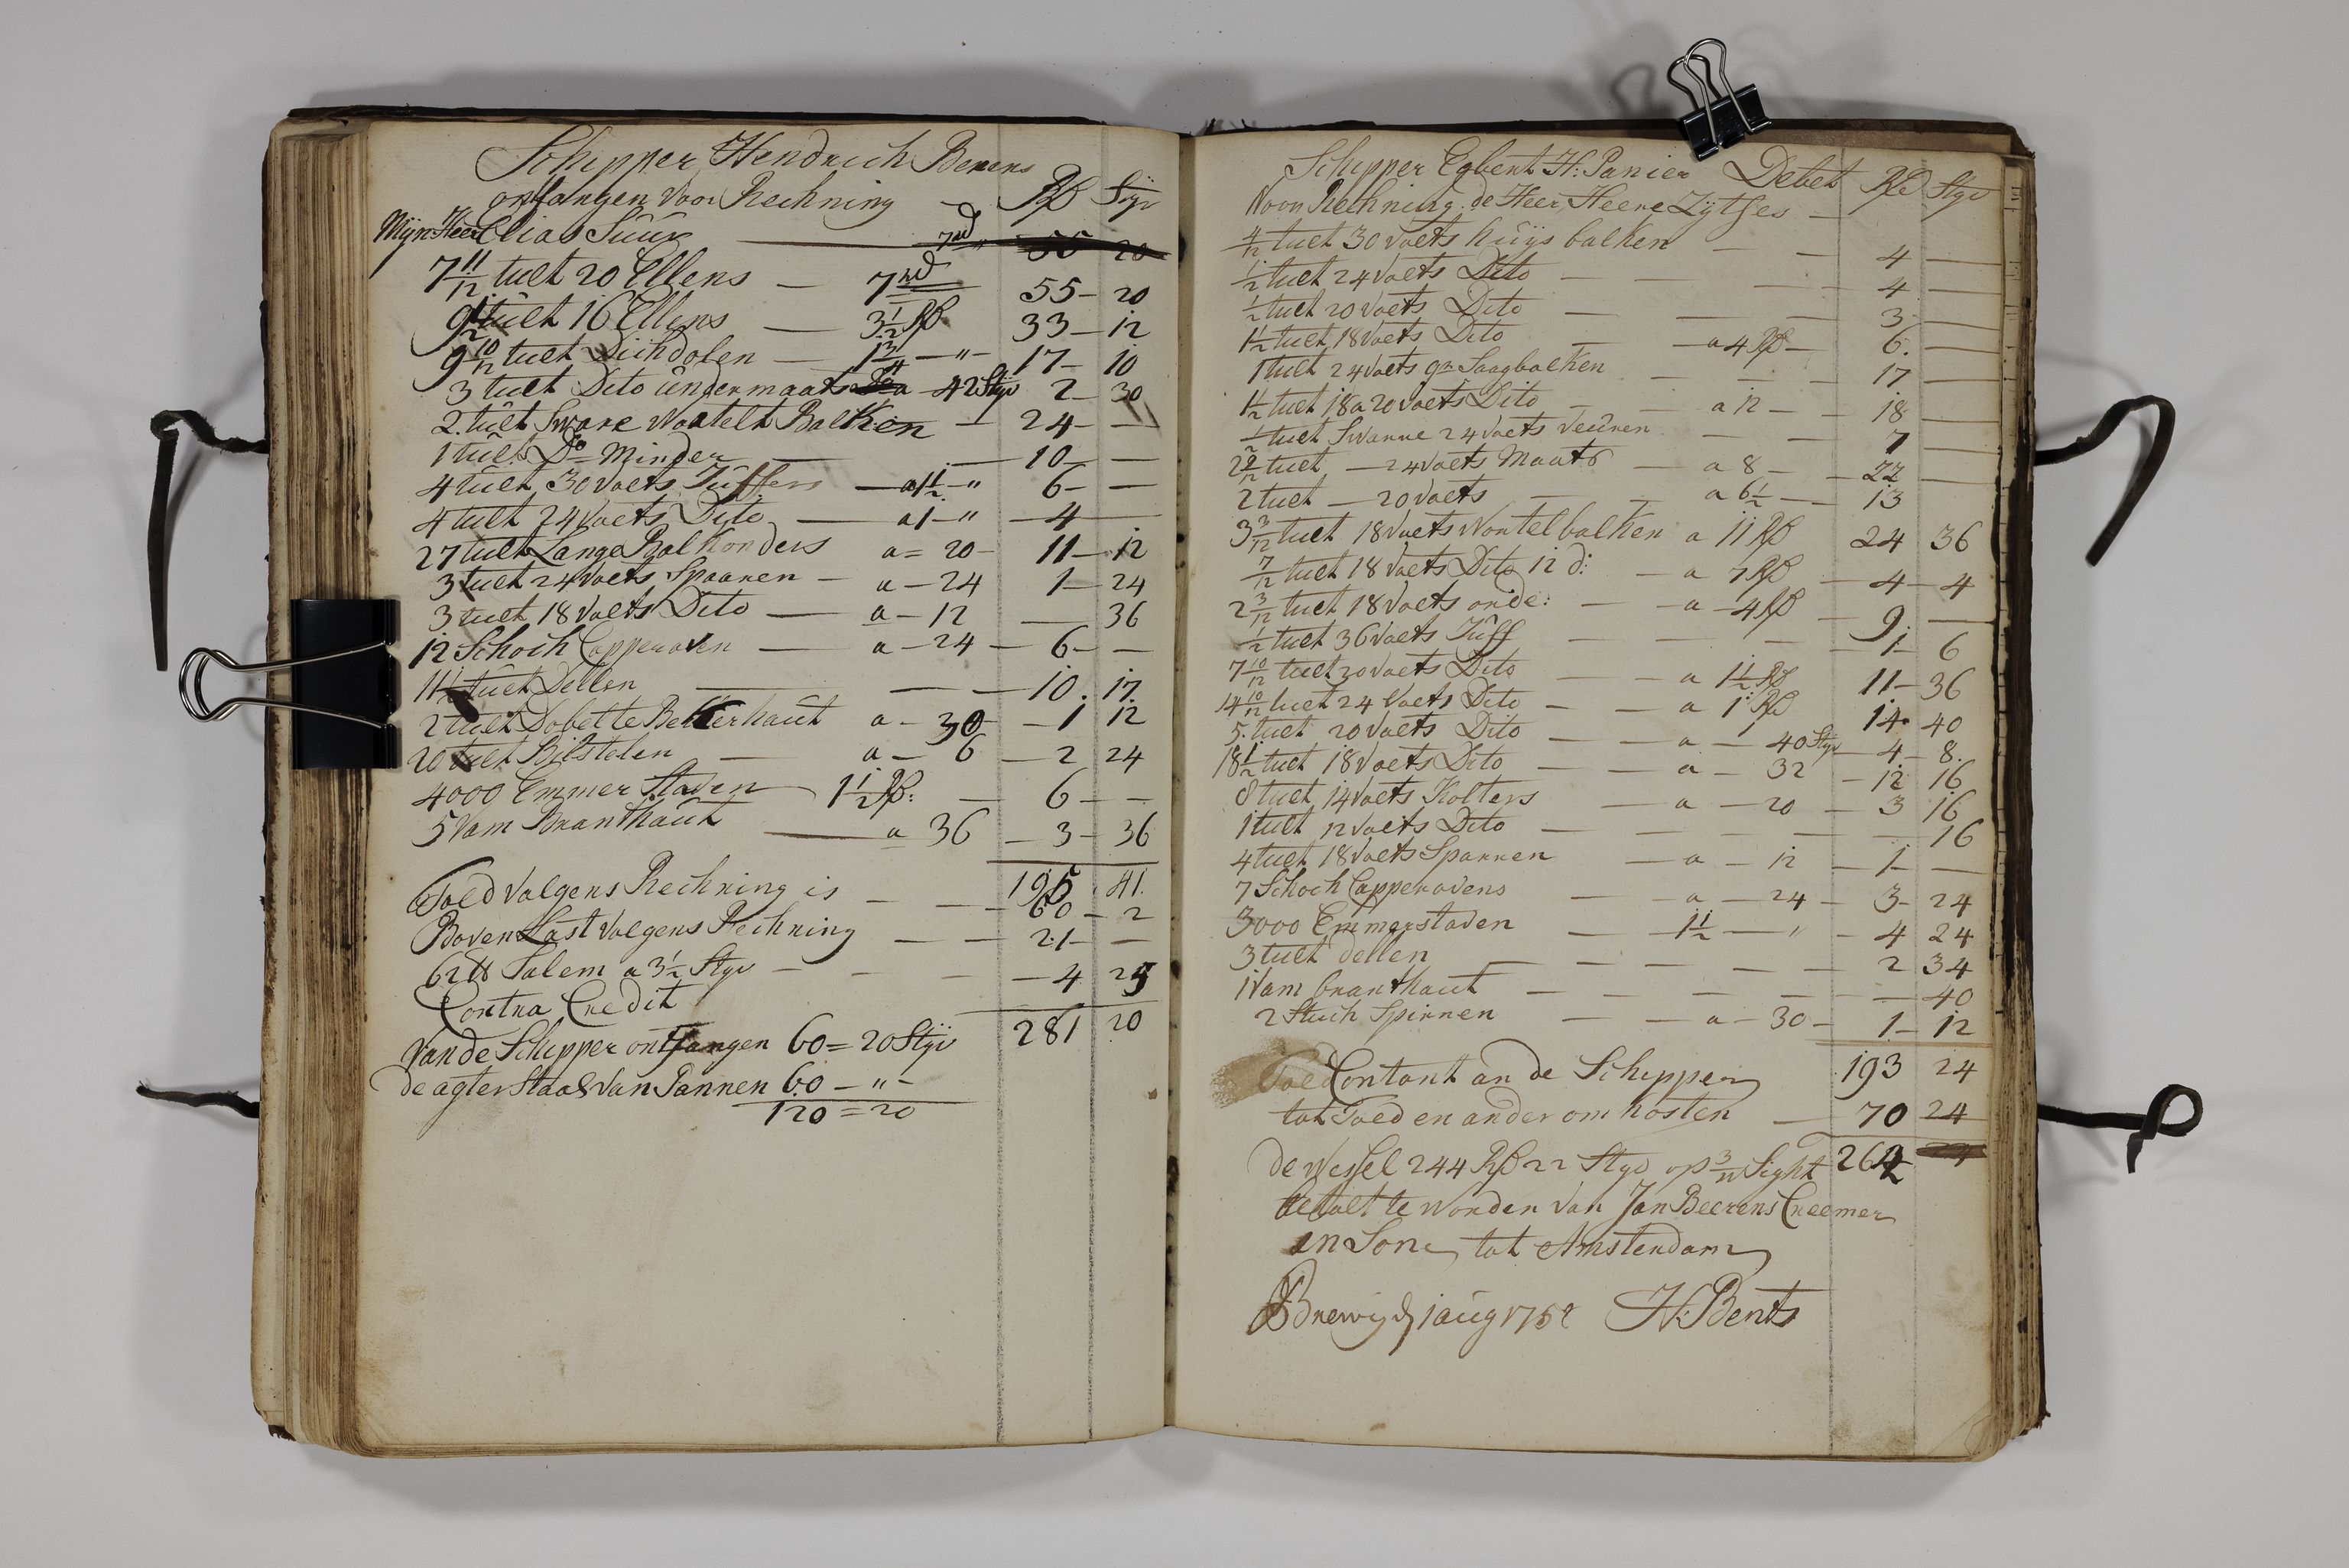 Schipper Hendrich Berens
ontfangen Voor Rechning — Rd Styv
Mijn Heer Elias Suur
7 11/12 tuelt 20 Ellens — 7 Rd 55 — 20
9 1/2 tuelt 16 Ellens — 3 1/2 Rd 33 — 12
9 10/12 tuelt Dichdolen — 1 3/4 — " — 17 — 10
3 tuelt Dito undermaats a — 42 Styv 2 — 30
2 tuelt Sware Wortelt Balken — 24 — —
1 tuelt Do Minder — 10 — —
4 tuelt 30 Voets Juffers — a 1 1/2 — " 6 — —
4 tuelt 24 Voets Dito — a 1 — " — 4 —
27 tuelt Lange Balkonders a = 20 — 11 — 12
3 tuelt 24 Voets Spaaren — a — 24 1 — 24
3 tuelt 18 Voets Dito — a — 12 — 36
12 Schoch Capperaven — a — 24 — 6 — —
11 1/2 tuelt Dellen — 10 . 17
2 tuelt Dobelte Bekkerhaut a — 30 — 1 12
20 tuelt Bilstelen — a — 6 — 2 24
4000 Emmer Staven 1 1/2 Rd: — 6 — —
5 Vam Branthaut — a 36 — 3 — 36
195 41
Told Volgens Rechning is — 60 — 2
Boven Last Volgens Rechning — 21 — —
62 ℔ Talem a 3 1/2 Styv — 4 25
Contra Credit
281 20
Van de Schipper ontfangen 60 = 20 Styv
de agterstaal Van Pannen 60 — " —
120 = 20
Schipper Egbert H: Panier Debet Rd Styv
Voor Rechning de Heer Heere Zytses —
4/12 tuelt 30 Voets huijs balken — 4 —
1/2 tuelt 24 Voets Dito — 4 —
1/2 tuelt 20 Voets Dito — 3 —
1 1/2 tuelt 18 Voets Dito — a 4 Rd — 6 —
1 tuelt 24 Voets gr Saagbalken — 17 —
1 1/2 tuelt 18 a 20 Voets Dito — a 12 — 18 —
1/2 tuelt Swarre 24 Voets Veuren — 7 —
2 9/12 tuelt — 24 Voets Maats — a 8 — 22 —
2 tuelt — 20 Voets — a 6 1/2 — 13
3 3/12 tuelt 18 Voets Wortelbalken a 11 Rd 24 36
7/12 tuelt 18 Voets Dito 12 d: — a 7 Rd — 4 — 4
2 3/12 tuelt 18 Voets onde: — a — 4 Rd — 9 —
1/2 tuelt 36 Voets Juff — 1 — 6
7 10/12 tuelt 30 Voets Dito — a 1 1/2 Rd 11 — 36
14 10/12 tuelt 24 Voets Dito — a 1 Rd 14 40
5 tuelt 20 Voets Dito — a — 40 Styv — 4 — 8
18 1/2 tuelt 18 Voets Dito — a — 32 — 12 16
8 tuelt 14 Voets Kolters — a — 20 — 3 16
1 tuelt 12 Voets Dito — 16
4 tuelt 18 Voets Sparren — a — 12 — 1 — —
7 Schoch Capperavens — a — 24 — 3 — 24
3000 Emmerstaven — 1 1/2 — " — 4 24
3 tuelt dellen — 2 34
1 Vam branthaut — 40
2 Stuch Spirren — a — 30 — 1 — 12
193 24
Contant an de Schipper
tot Told en ander omkosten — 70 24
de Wessel 244 Rd 22 Styv op 3/m Sight 264
betalt te worden Van Jan Beerens Creemer
en Sone tot Amsterdam
1 aug 1752 H: Bents